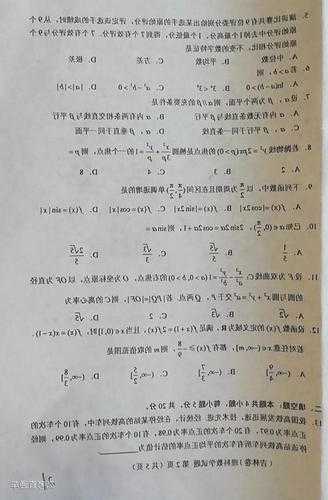 5. 演讲比赛共有9位评委分别给出某选手的原始评分，评定该选手的成绩时，从9个
原始评分中去掉1个最高分、1个最低分，得到7个有效评分．7个有效评分与9个
原始评分相比，不变的数字特征是
A．中位数 B．平均数 C．方差 D．极差
6. 若a>b，则
A．ln(a−b)>0 B．3ᵃ<3ᵇ C．a³−b³>0 D．|a|>|b|
7. 设α，β为两个平面，则α//β的充要条件是
A．α内有无数条直线与β平行 B．α内有两条相交直线与β平行
C．α，β平行于同一条直线 D．α，β垂直于同一平面
8. 若抛物线y²=2px(p>0)的焦点是椭圆x²/3p+y²/p=1的一个焦点，则p=
A．2 B．3 C．4 D．8
9. 下列函数中，以π/2为周期且在区间(π/4,π/2)单调递增的是
A．f(x)=|cos2x| B．f(x)=|sin2x| C．f(x)=cos|x| D．f(x)=sin|x|
10. 已知α∈(0,π/2)，2sin2α=cos2α+1，则sinα=
A．1/5 B．√5/5 C．√3/3 D．2√5/5
11. 设F为双曲线C：x²/a²−y²/b²=1(a>0,b>0)的右焦点，O为坐标原点，以OF为直径
的圆与圆x²+y²=a²交于P，Q两点．若|PQ|=|OF|，则C的离心率为
A．√2 B．√3 C．2 D．√5
12. 设函数f(x)的定义域为R，满足f(x+1)=2f(x)，且当x∈(0,1]时，f(x)=x(x−1)．
若对任意x∈(−∞,m]，都有f(x)≥−8/9，则m的取值范围是
A．(−∞,9/4] B．(−∞,7/3] C．(−∞,5/2] D．(−∞,8/3]
二、填空题：本题共4小题，每小题5分，共20分．
13. 我国高铁发展迅速，技术先进．经统计，在经停某站的高铁列车中，有10个车次的
正点率为0.97，有20个车次的正点率为0.98，有10个车次的正点率为0.99，则经
停该站高铁列车所有车次的平均正点率的估计值为
（吉林卷）理科数学试题 第2页（共5页）